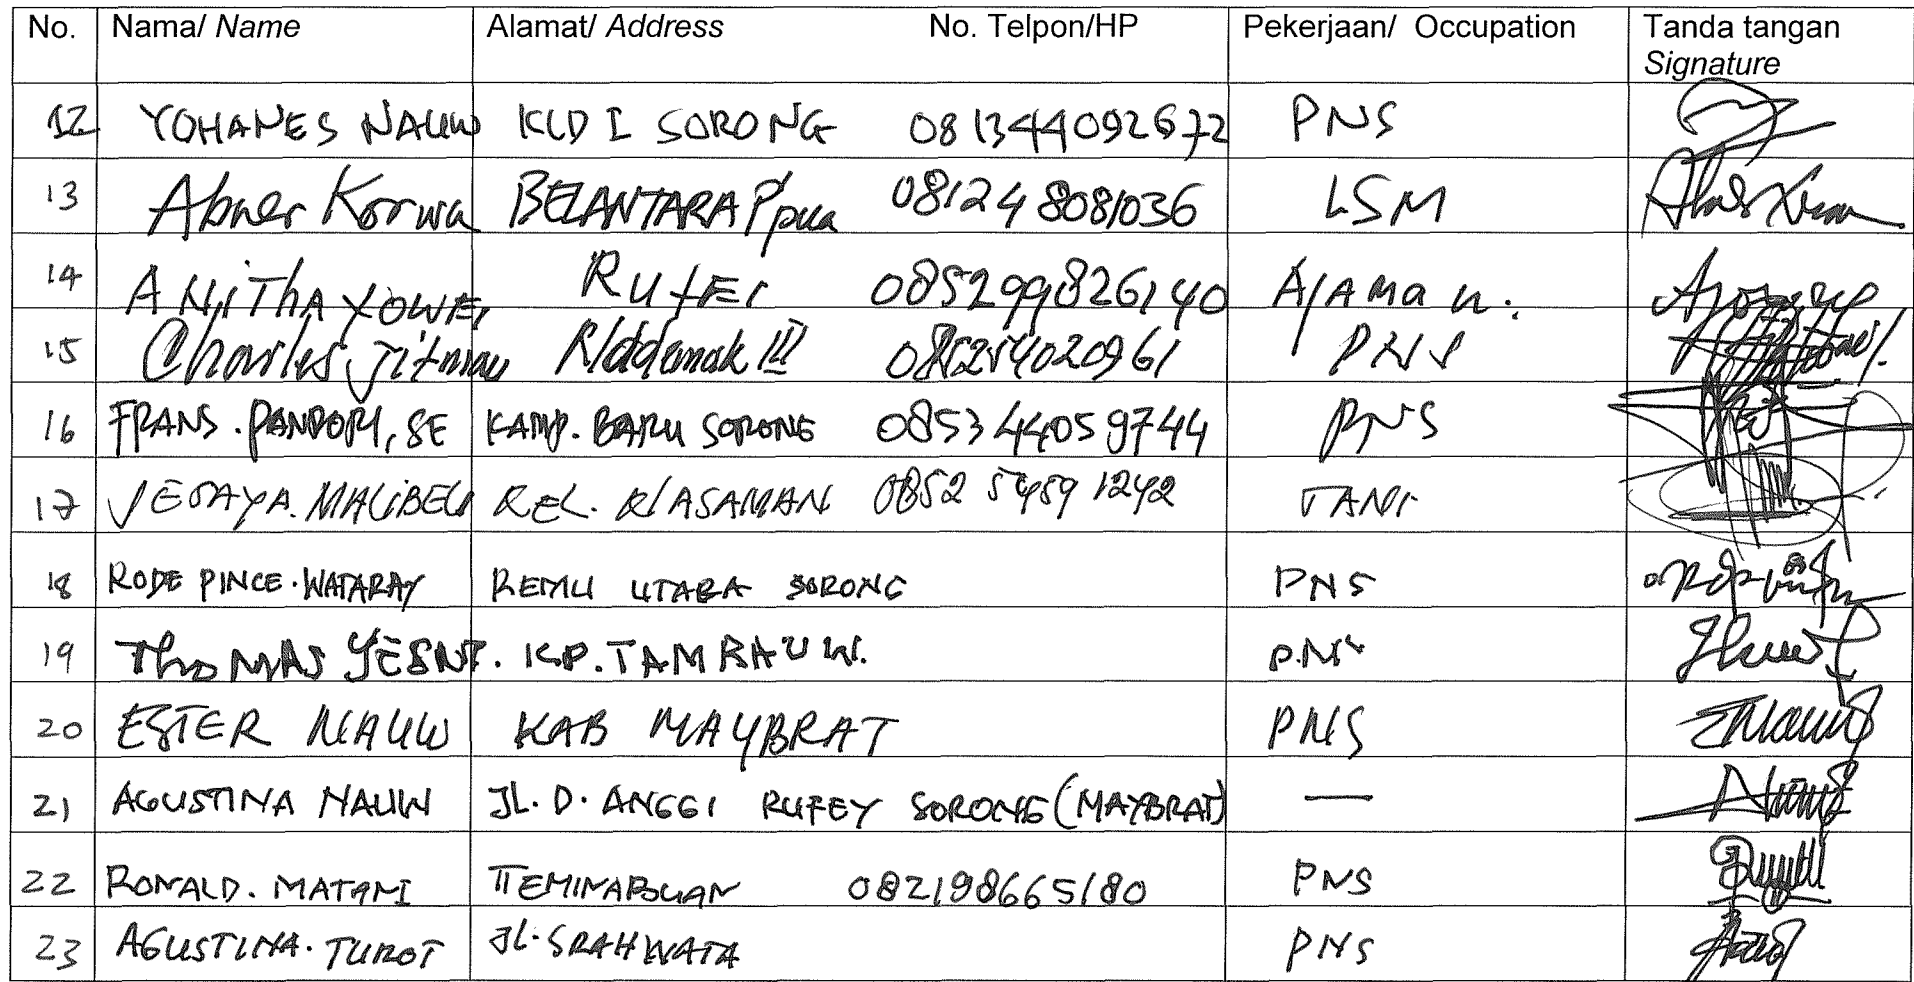 No. Nama/ Name Alamat/ Address No. Telpon/HP Pekerjaan/ Occupation Tanda tangan
Signature
12 YOHANES NAUW KLD I SORONG 081344092672 PNS
13 Abner Korwa BELANTARA Ppua 081248081036 LSM
14 ANITHA YOWEI RUFEI 085299826140 AJAMAU.
15 Charles Jitmau III 085254020961 PNS
16 FRANS. PANDORI, SE KAMP. BARU SORONG 085344059744 PNS
17 YESAYA. MALIBELA KEL. KLASAMAN 0852 5459 1242 TANI
18 RODE PINCE. WATARAY REMU UTARA SORONG PNS
19 THOMAS YESNT. KP. TAMBRAUW. P.NS
20 ESTER NAUW KAB MAYBRAT PNS
21 AGUSTINA NAUW JL. D. ANGGI RUFEY SORONG (MAYBRAT) —
22 RONALD. MATANI TEMINABUAN 082198665180 PNS
23 AGUSTINA. TUROT JL. PNS